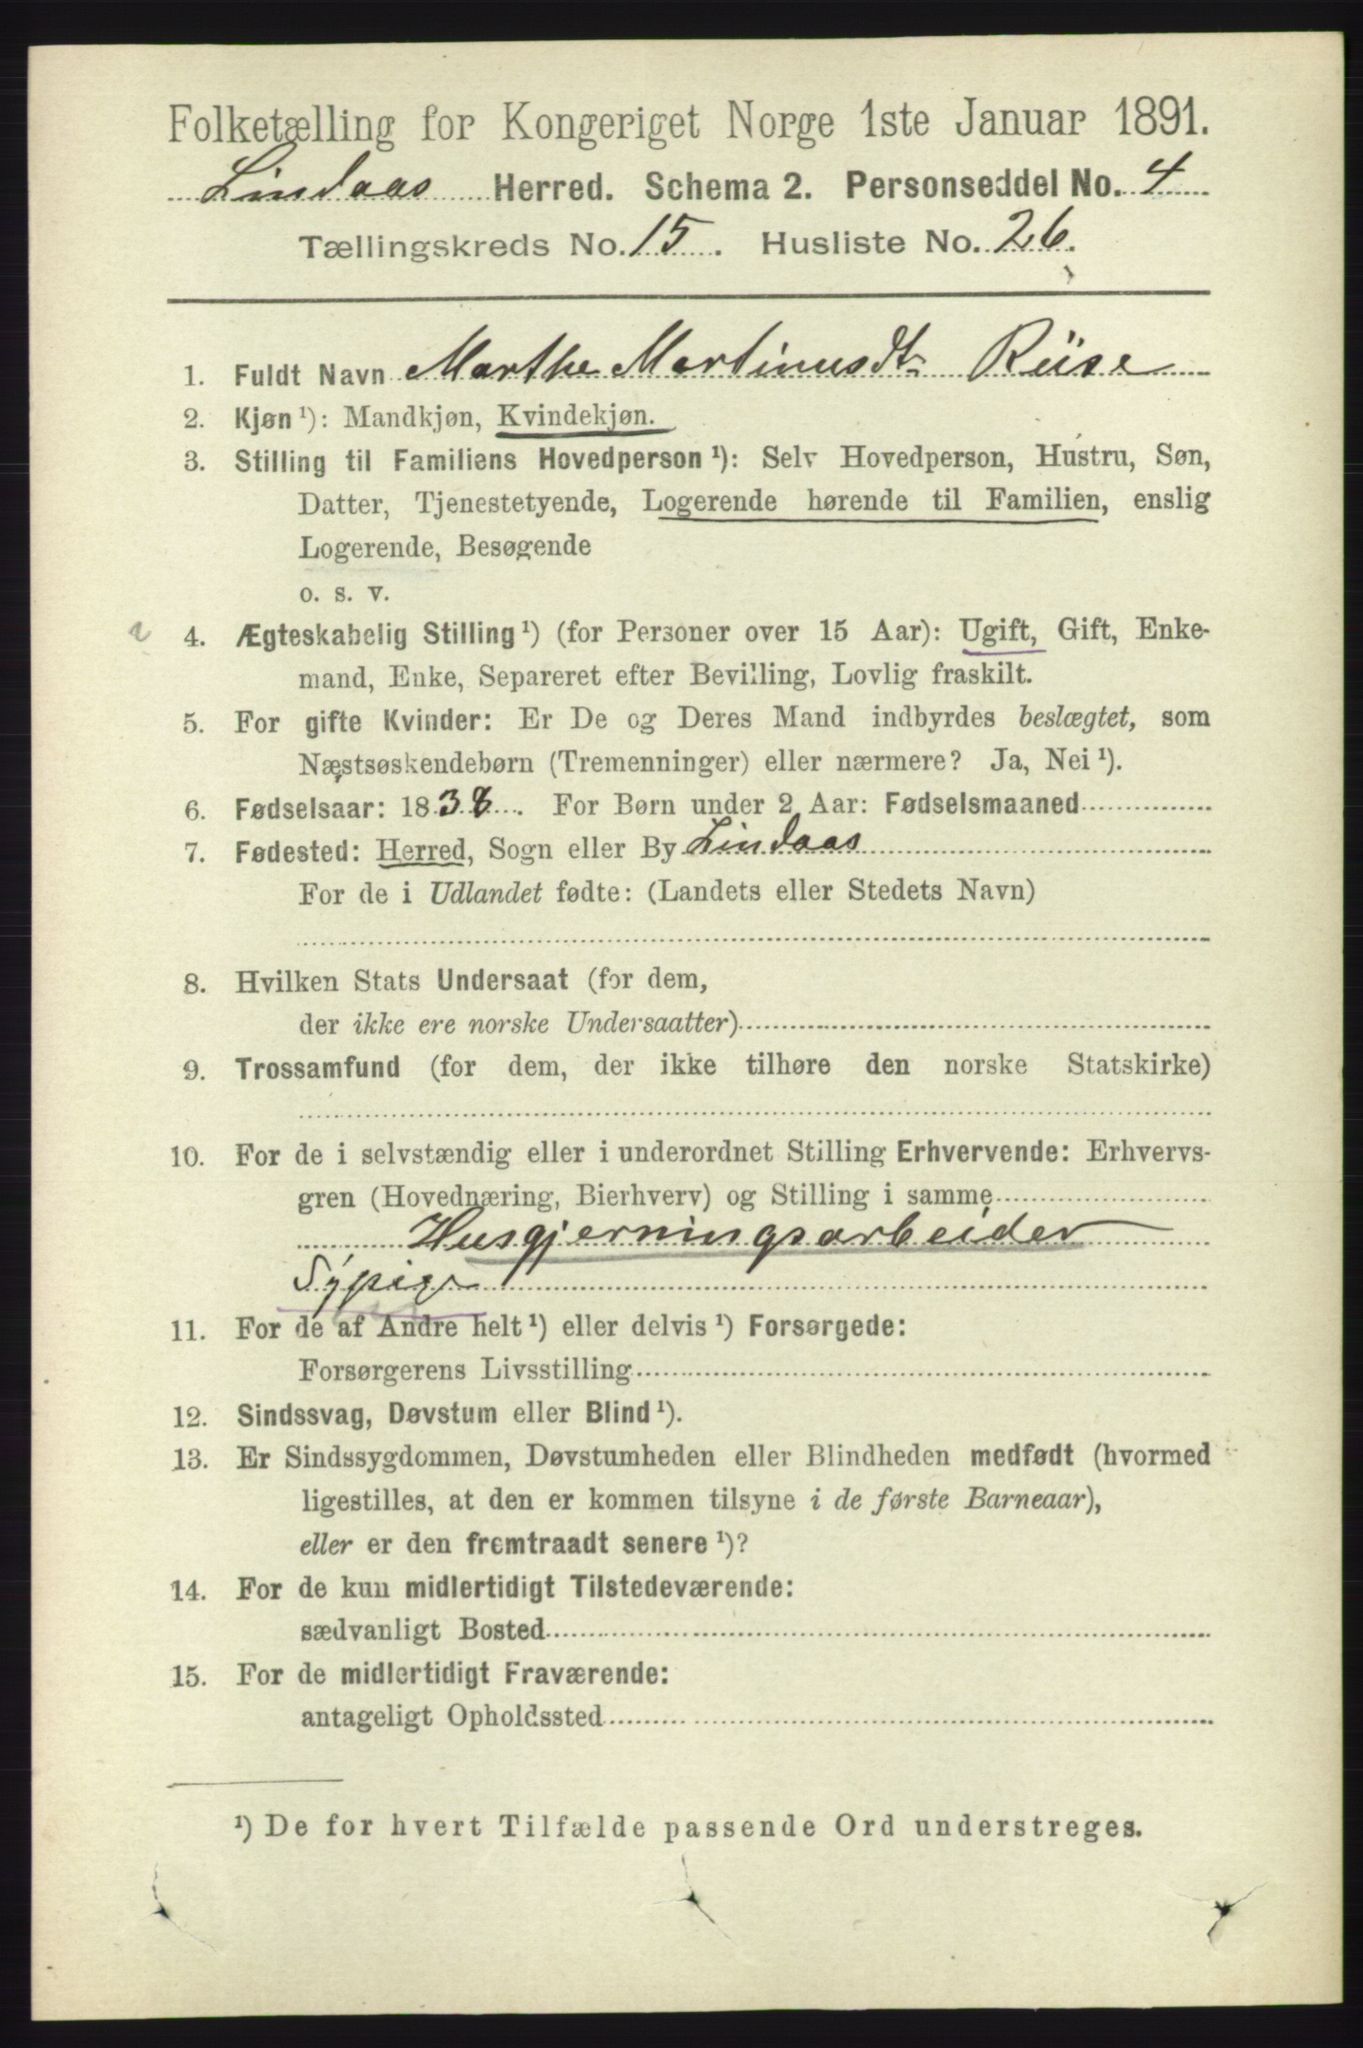 Folketælling for Kongeriget Norge 1ste Januar 1891.
Lindaas Herred. Schema 2. Personseddel No. 4
Tællingskreds No. 15. Husliste No. 26.
1. Fuldt Navn Marthe Martinusdt. Riise
2. Kjøn ¹): Mandkjøn, Kvindekjøn.
3. Stilling til Familiens Hovedperson ¹): Selv Hovedperson, Hustru, Søn,
Datter, Tjenestetyende, Logerende hørende til Familien, enslig
Logerende, Besøgende
o. s. v.
4. Ægteskabelig Stilling ¹) (for Personer over 15 Aar): Ugift, Gift, Enke-
mand, Enke, Separeret efter Bevilling, Lovlig fraskilt.
5. For gifte Kvinder: Er De og Deres Mand indbyrdes beslægtet, som
Næstsøskendebørn (Tremenninger) eller nærmere? Ja, Nei ¹).
6. Fødselsaar: 1838. For Børn under 2 Aar: Fødselsmaaned
7. Fødested: Herred, Sogn eller By Lindaas
For de i Udlandet fødte: (Landets eller Stedets Navn)
8. Hvilken Stats Undersaat (for dem,
der ikke ere norske Undersaatter)
9. Trossamfund (for dem, der ikke tilhøre den norske Statskirke)
10. For de i selvstændig eller i underordnet Stilling Erhvervende: Erhvervs-
gren (Hovednæring, Bierhverv) og Stilling i samme
Husgjerningsarbeider
Sypige
11. For de af Andre helt ¹) eller delvis ¹) Forsørgede:
Forsørgerens Livsstilling
12. Sindssvag, Døvstum eller Blind ¹).
13. Er Sindssygdommen, Døvstumheden eller Blindheden medfødt (hvormed
ligestilles, at den er kommen tilsyne i de første Barneaar),
eller er den fremtraadt senere ¹)?
14. For de kun midlertidigt Tilstedeværende:
sædvanligt Bosted
15. For de midlertidigt Fraværende:
antageligt Opholdssted
¹) De for hvert Tilfælde passende Ord understreges.